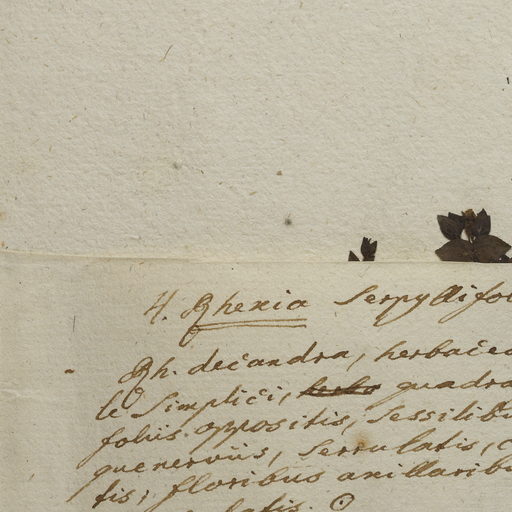 4. Rhexia Serpyllifo
Rh. decandra, herbacea
le Simplici, quadra
foliis oppositis, sessilibu
quenerviis, serrulatis, c
tis; floribus axillaribu
latis. ☉